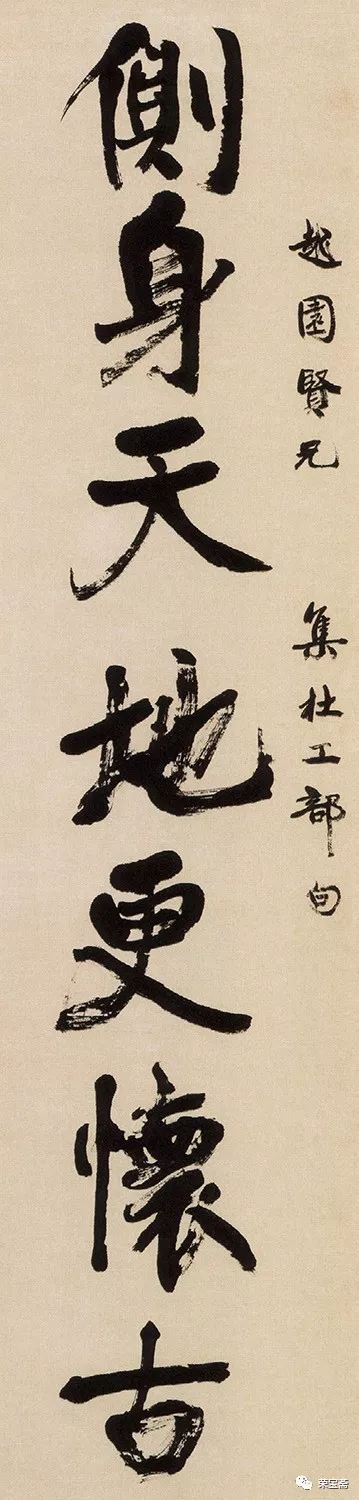 越園賢兄 集杜工部句
側身天地更懷古
荣宝斋